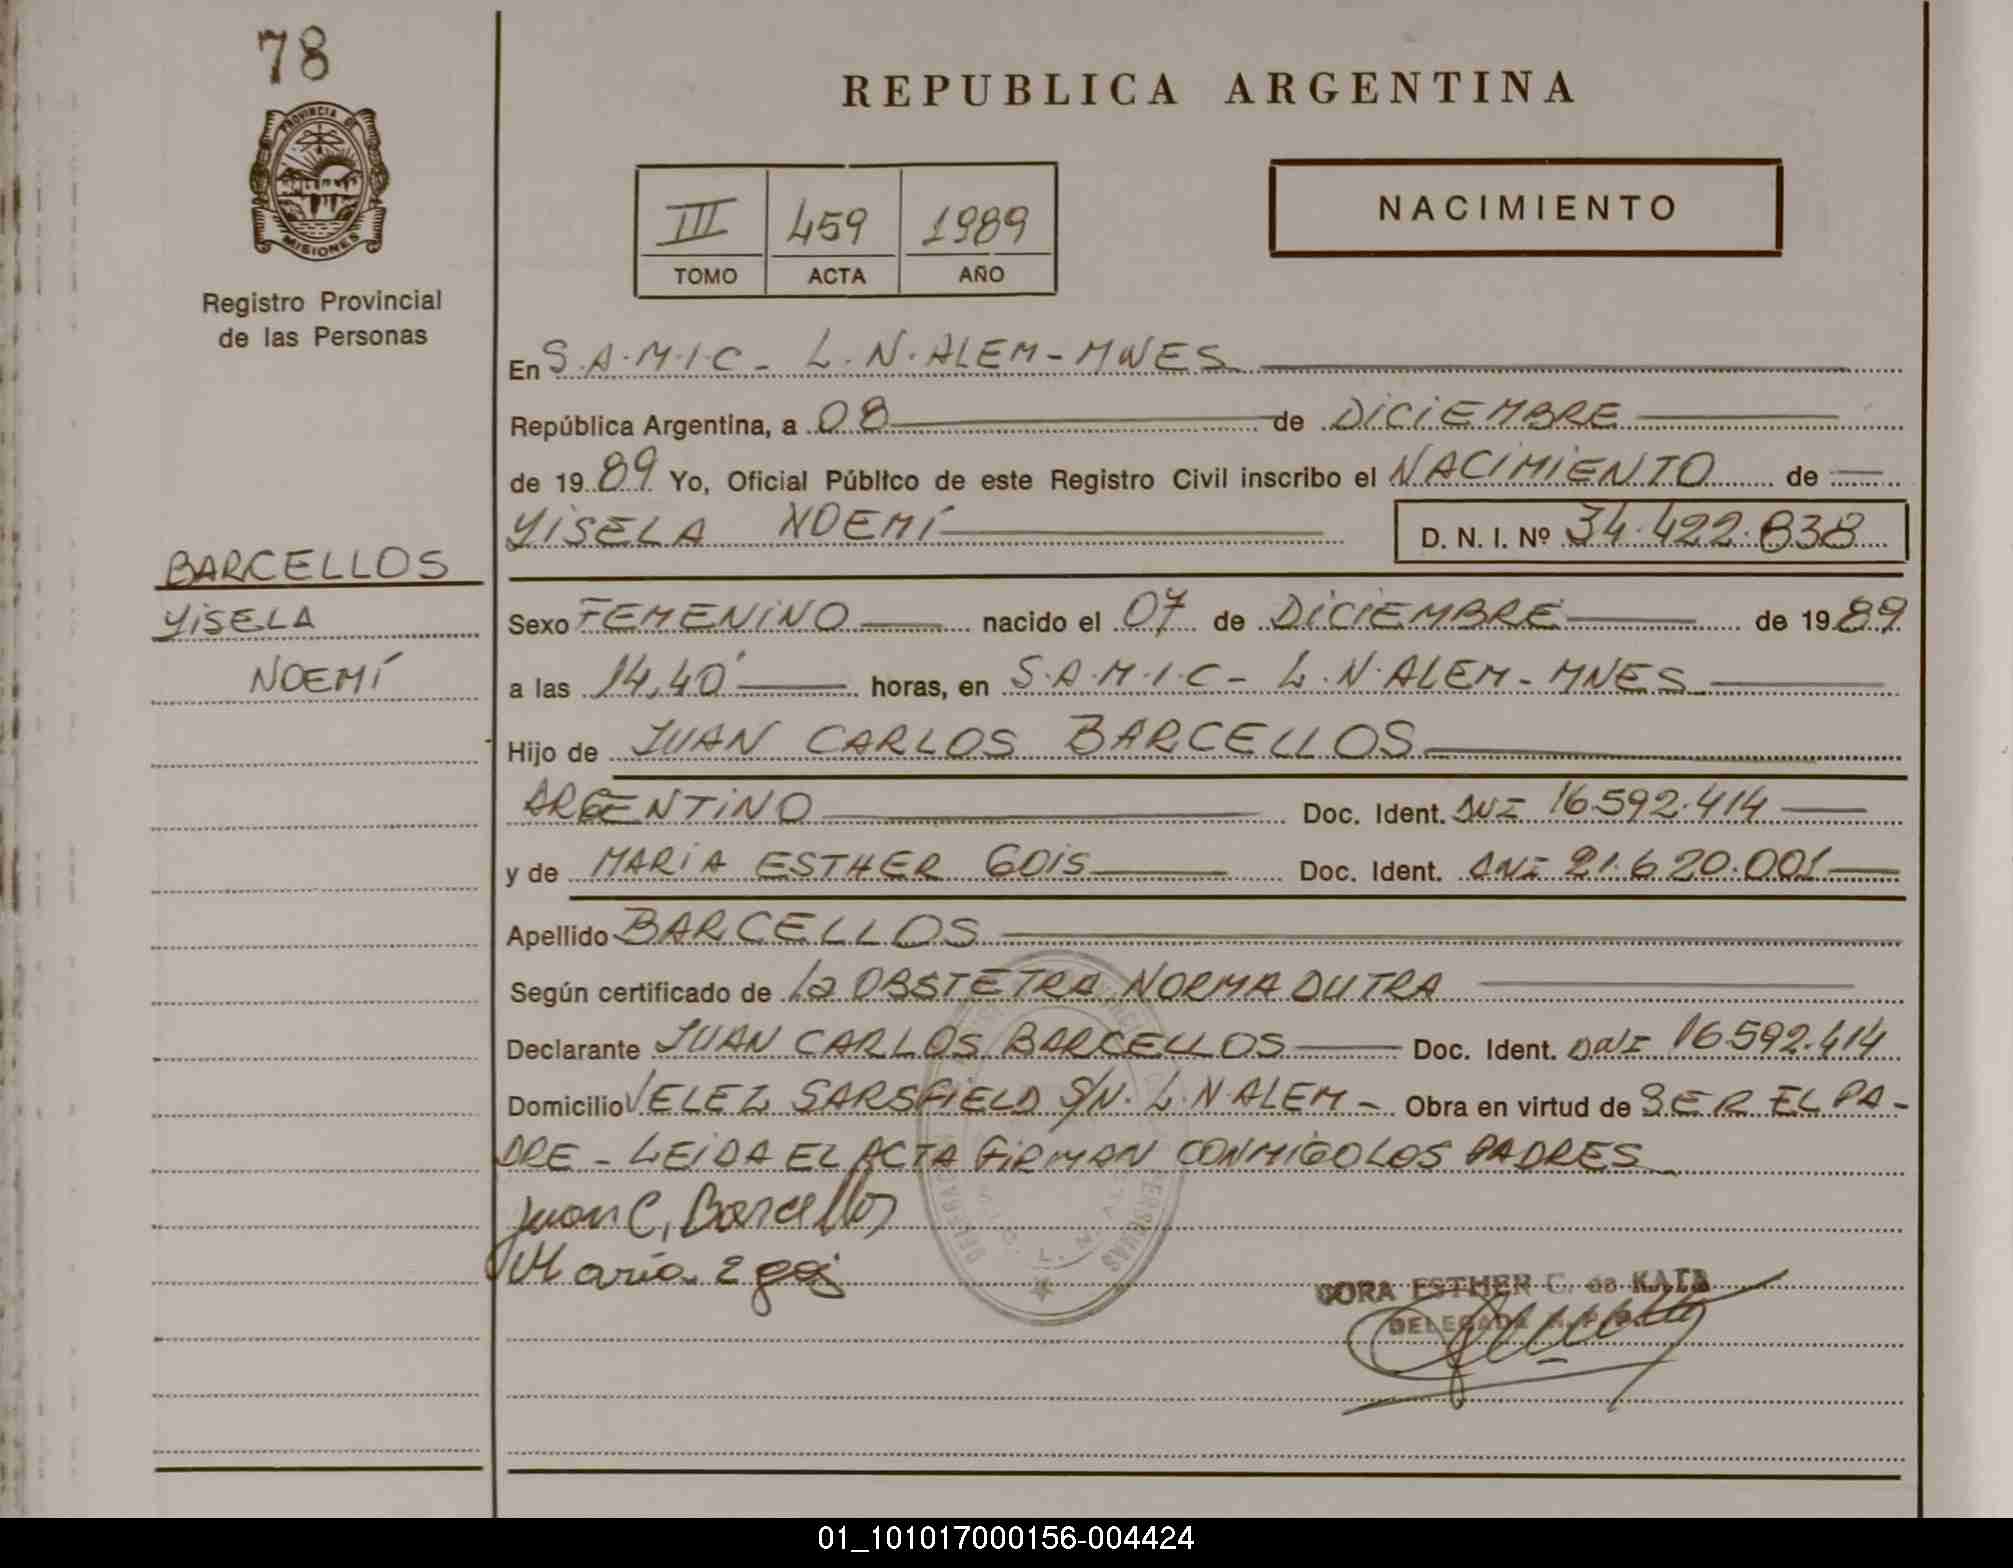 78
PROVINCIA DE
MISIONES
Registro Provincial
de las Personas
BARCELLOS
YISELA
NOEMÍ
REPUBLICA ARGENTINA
III 459 1989
TOMO ACTA AÑO
NACIMIENTO
En S.A.M.I.C - L.N.ALEM - MNES
República Argentina, a 08 de DICIEMBRE
de 1989 Yo, Oficial Público de este Registro Civil inscribo el NACIMIENTO de
YISELA NOEMÍ D. N. I. Nº 34.422.838
Sexo FEMENINO nacido el 07 de DICIEMBRE de 1989
a las 14,40' horas, en S.A.M.I.C - L.N.ALEM - MNES
Hijo de JUAN CARLOS BARCELLOS
ARGENTINO Doc. Ident. DNI 16.592.414
y de MARIA ESTHER GOIS Doc. Ident. DNI 21.620.001
Apellido BARCELLOS
Según certificado de la OBSTETRA NORMA DUTRA
Declarante JUAN CARLOS BARCELLOS Doc. Ident. DNI 16.592.414
Domicilio VELEZ SARSFIELD S/N. L.N ALEM - Obra en virtud de SER EL PA-
DRE - LEIDA EL ACTA FIRMAN CONMIGO LOS PADRES
Juan C, Barcellos
Maria E
ESTHER C. de KATZ
DELEGADA
01_101017000156-004424